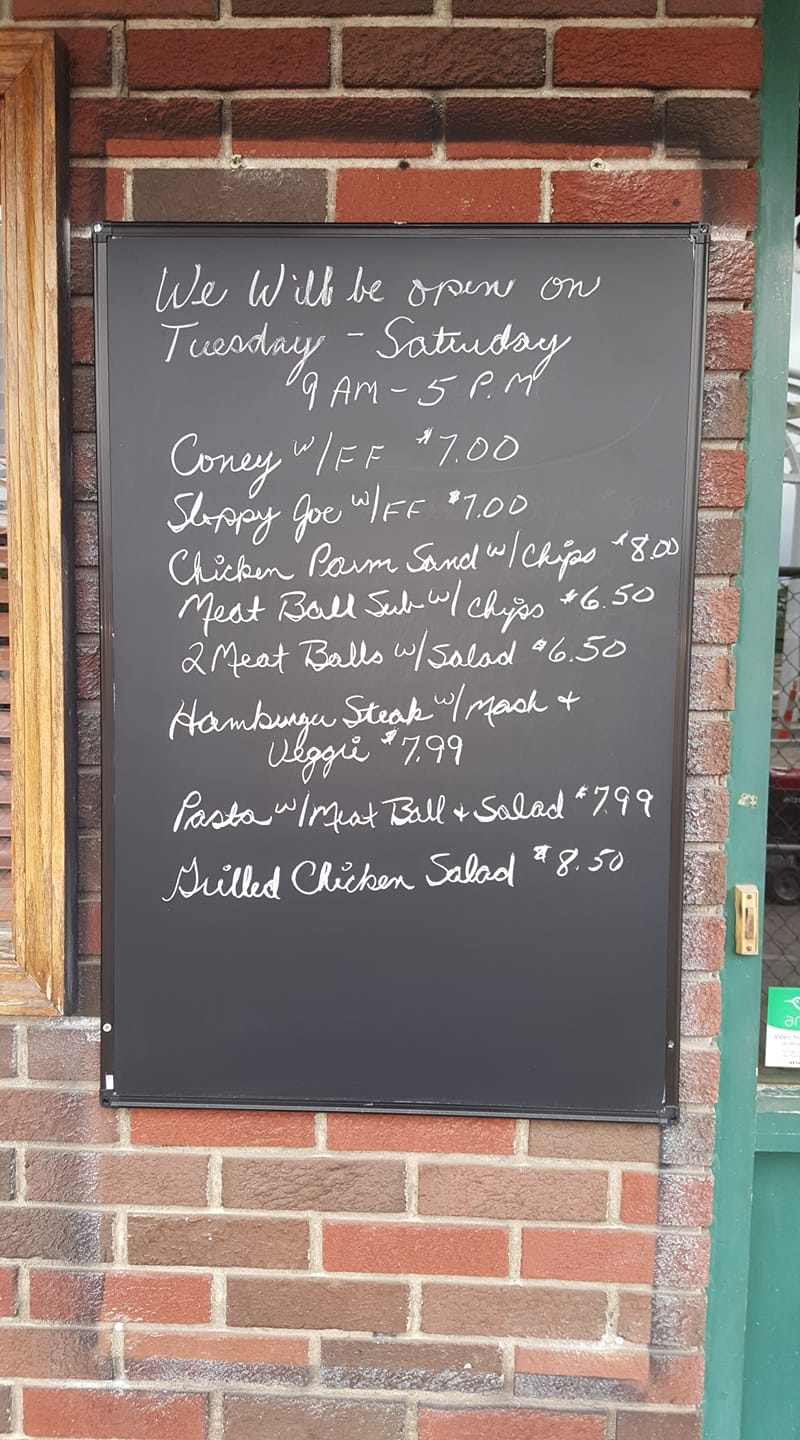 We Will be open on
Tuesday - Saturday
9 AM - 5 P.M
Coney w/FF $7.00
Sloppy Joe w/FF $7.00
Chicken Parm Sand w/ Chips $8.00
Meat Ball Sub w/ chips $6.50
2 Meat Balls w/Salad $6.50
Hamburger Steak w/ Mash +
Veggie $7.99
Pasta w/Meat Ball + Salad $7.99
Grilled Chicken Salad $8.50